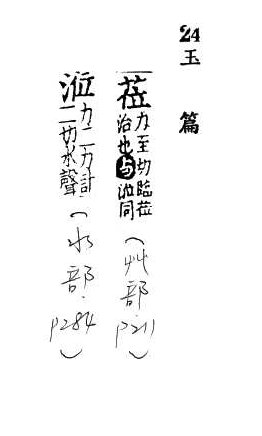 24
玉篇
莅力至切臨莅
治也与涖同
(艸部.P211)
涖力二力計
二切水聲
(水部.P284)